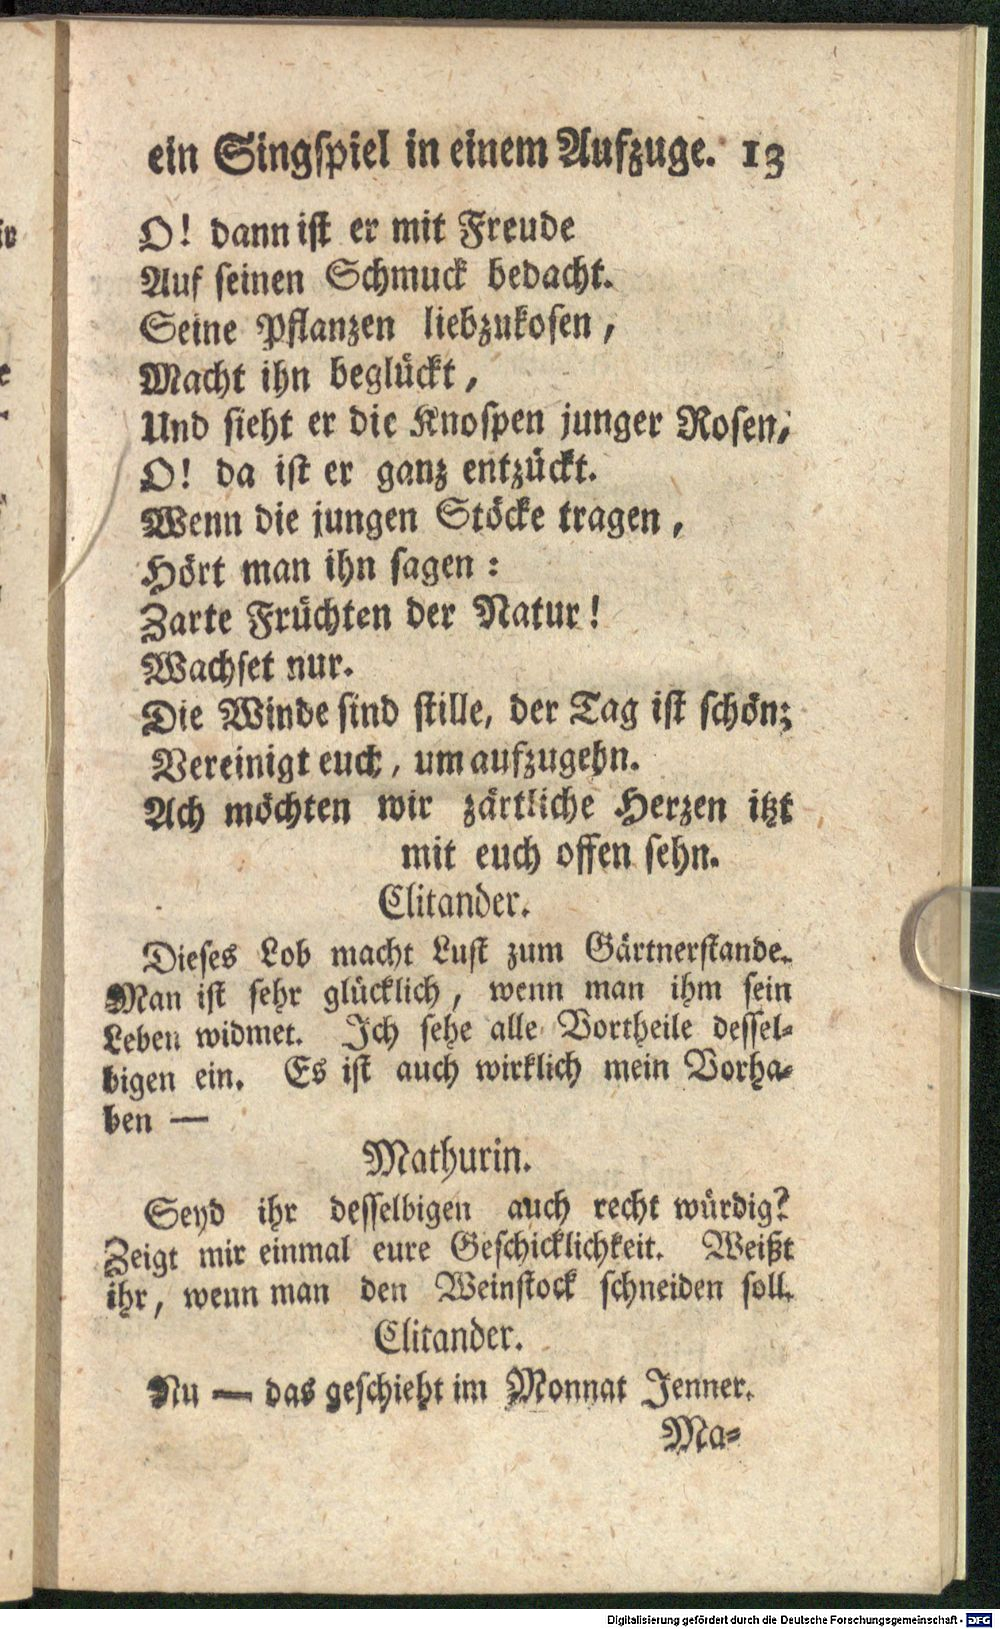 ein Singspiel in einem Aufzuge. 13
O! dann ist er mit Freude
Auf seinen Schmuck bedacht.
Seine Pflanzen liebzukosen,
Macht ihn beglückt,
Und sieht er die Knospen junger Rosen,
O! da ist er ganz entzückt.
Wenn die jungen Stöcke tragen,
Hört man ihn sagen:
Zarte Früchten der Natur!
Wachset nur.
Die Winde sind stille, der Tag ist schön;
Vereinigt euch, um aufzugehn.
Ach möchten wir zärtliche Herzen itzt
mit euch offen sehn.
Clitander.
Dieses Lob macht Lust zum Gärtnerstande.
Man ist sehr glücklich, wenn man ihm sein
Leben widmet. Ich sehe alle Vortheile dessel-
bigen ein. Es ist auch wirklich mein Vorha-
ben —
Mathurin.
Seyd ihr desselbigen auch recht würdig?
Zeigt mir einmal eure Geschicklichkeit. Weißt
ihr, wenn man den Weinstock schneiden soll.
Clitander.
Nu — das geschieht im Monnat Jenner.
Ma-
Digitalisierung gefördert durch die Deutsche Forschungsgemeinschaft - DFG